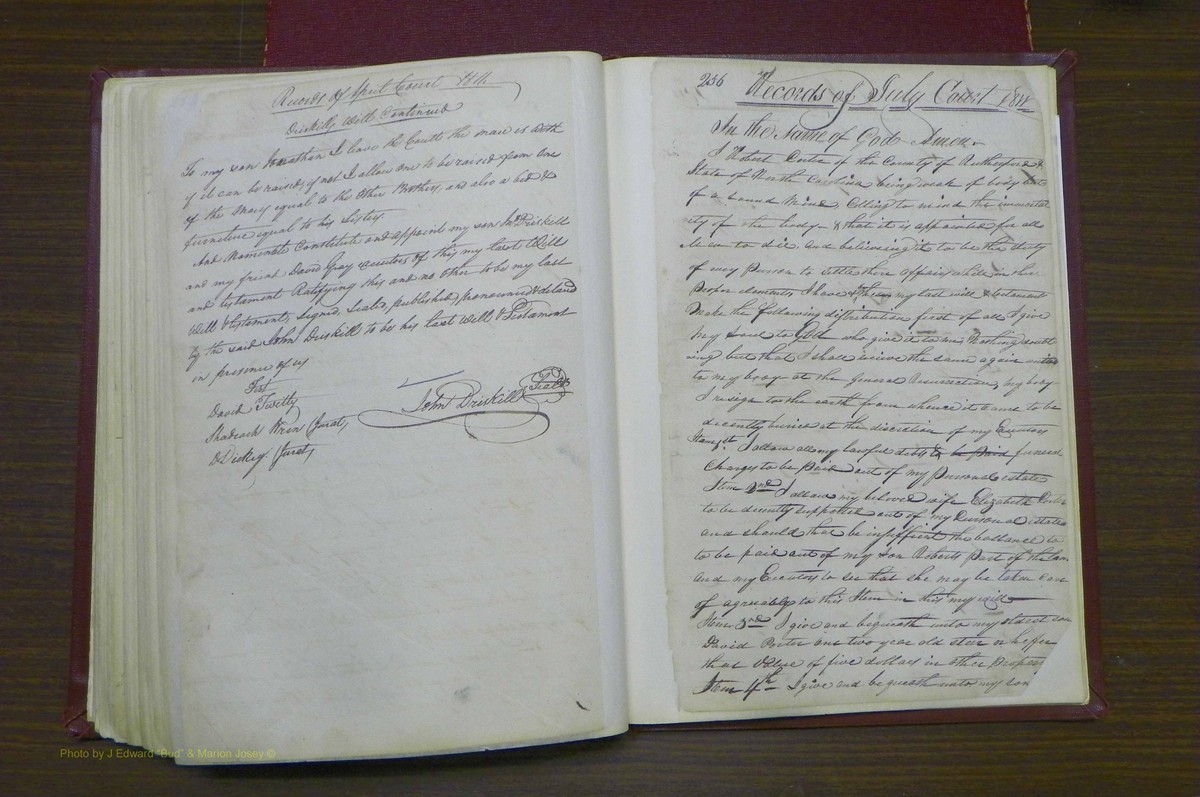 Records of April Court
Driskills Will Continued
To my son Jonathan I leave the Cault the mare is with
if it can be raised, if not I allow one to be raised from One
of the Mares equal to the Other Brothers, and also a bed &
furneture equal to his Sister.
And Nominate Constitute and appoint my son Driskill
and my friend David Gray executors of this my last Will
and testament Ratifying this and no other to be my last
Will & testament, signed, sealed, published, pronounced & delard
by the said John Driskill to be his last Will & Testament
in presence of us
Test
David Twitty
Shadrach (Jurat)
Dickey (Jurat)
John Driskill Seal
236 Records of July Court
In the Name of God Amen
I Robert Porter of the County of Rutherford &
State of North Carolina being weak of body but
of a sound Mind, Calling to mind the immortal
ity of the body & that it is appointed for all
Men to die and believeing it to be the duty
of every Person to settle there affairs while in there
Proper elements I have my last will & testament
Make the following distribution first of all I give
my soul to God who give it to me Nothing doubt
ing but that I shall recieve the same again united
to my body at the General Resurrection, my body
I resign to the earth from whence it came to be
decently buried at the discretion of my Executors
Item 1st I allow all my lawful debts funeral
Charges to be paid out of my personal estate
Item 2nd I allow my beloved wife Elizabeth Porter
to be decently supported out of my Personal estate
and should that be insufficent the ballance to
to be paid out of my son Roberts Part of the
and my Executors to see that she may be taken care
of agreeably to this Item in this my will
Item 3rd I give and bequeath unto my oldest son
David Porter one two year old steer or heffer
that Value of five dollars in other property
Item 4th I give and bequeath unto my son
Photo by J Edward "Bud" & Marion Josey ©